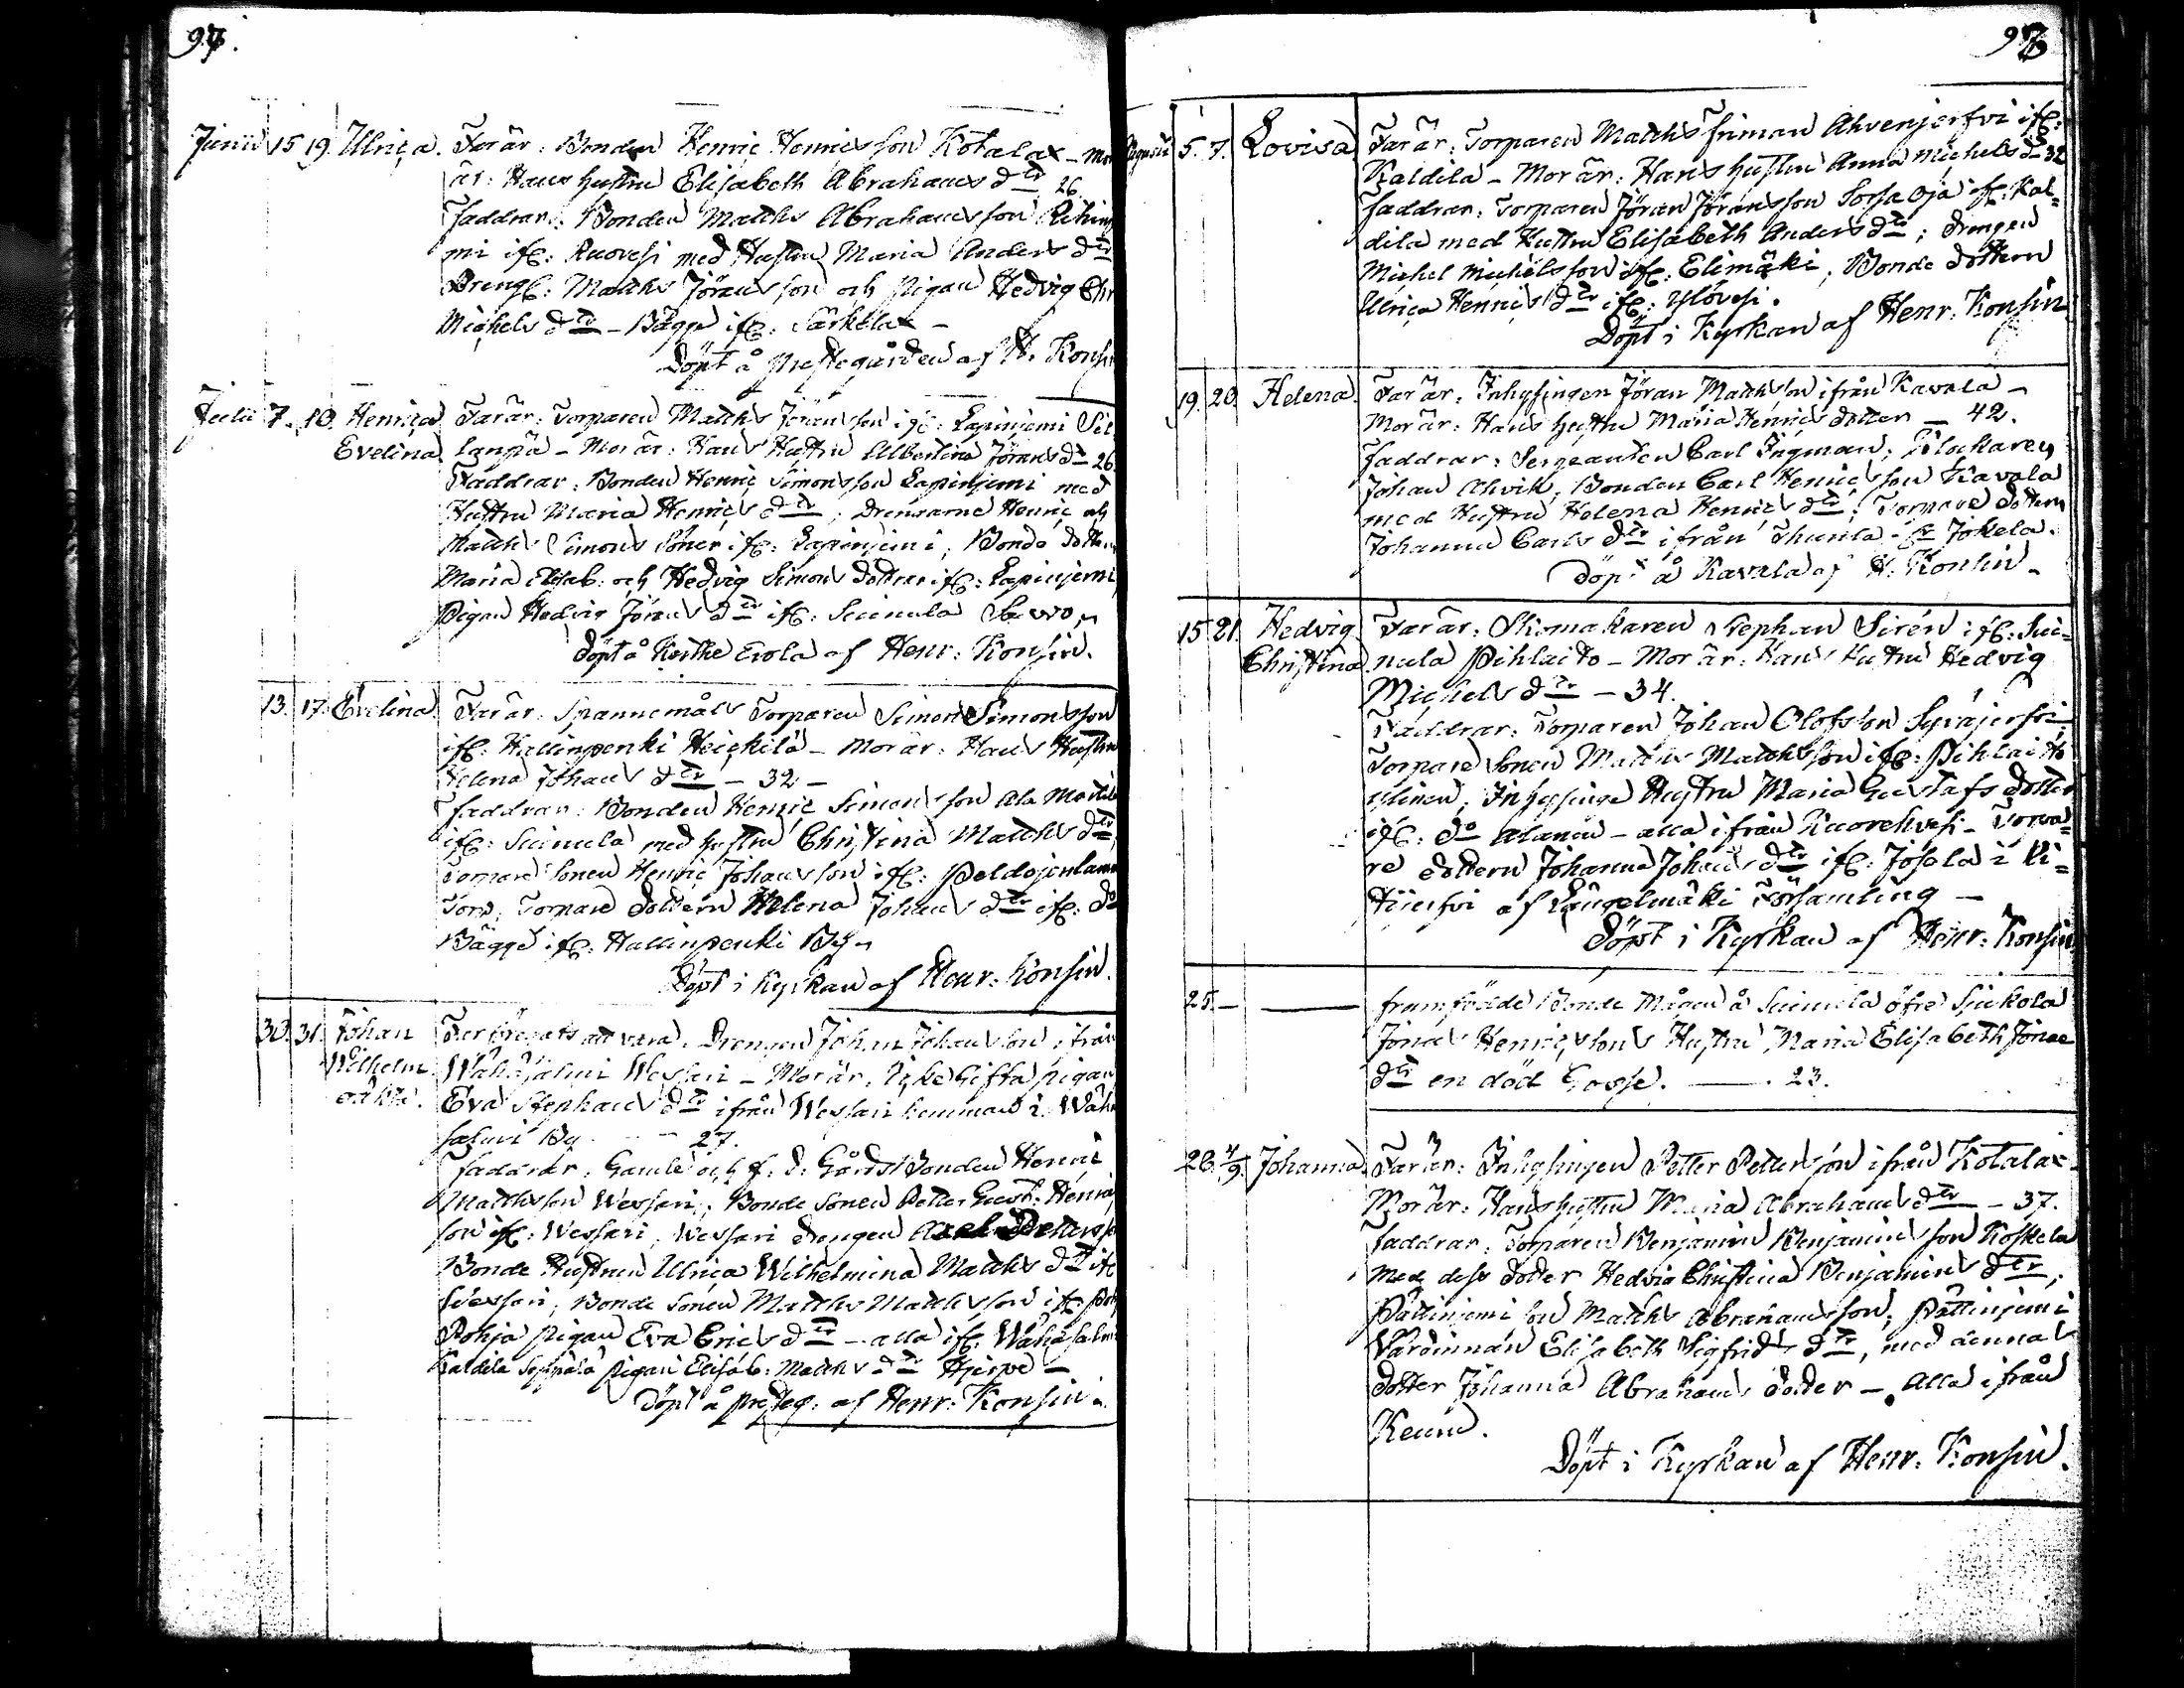 97.
Junii 15 19. Ulrica. Far är: Bonden Henric Henricsson Kotala - Mor
är: Hans hustru Elisabeth Abrahams dtr 26.
Faddrar: Bonden Matths Abrahamsson
mi ifr: Ruovesi med Hustru Maria Anders dtr
Dreng: Matths Jöransson och pigan Hedvig
Michels dtr - Bägge ifr: Särkela -
Döpt å Prestegården af H. Konsin
Julii 7. 10. Henrica Far är: Torparen Matths Jöransson ifr: Lapinjemi Sil
Evelina lanpä - Mor är: Hans Hustru Albertina Jörans dr 26
Faddrar: Bonden Henric Simonsson Lapinjemi med
Hustru Maria Henrics dtr; Drengarne Henric och
Matths Simons Söner ifr: Lapinjemi; Bonde dottern
Maria Elisab: och Hedvig Simons döttrar ifr: Lapinjemi
Pigan Hedvig Jörans dtr ifr: Suinula Savo
Döpt å Kerthe Erola af Henr: Konsin.
13. 17. Evelina Far är: Spannemåls Torparen Simon Simonsson
ifr: Hallinpenki Heickilä - Mor är: Hans Hustru
Helena Johans dtr - 32 -
Faddrar: Bonden Henric Simonsson Ala Marttila
ifr: Suinula med hustru Christina Matths dtr,
Torpare Sonen Henric Johansson ifr: Peldojenlam
Torp, Torpare dottern Helena Johans dtr ifr: do
Bägge ifr: Hallinpenki By
Döpt i Kyrkan af Henr: Konsin.
30. 31. Johan Far föregets att vara: Drengen Johan Johansson ifrån
Wilhelm Wähäsalmi Wessari - Mor är: Ogifta pigan
oäkta. Eva Stephans dtr ifrån Wessari hemman i Wähä
salmi By - 27.
Faddrar: Gamle och f. d. Gårds Bonden Henric
Matthsson Wessari; Bonde Sonen Petter Gust: Henrics
son ifr: Wessari, Wessari drengen Petterss
Bonde Hustrun Ulrica Wilhelmina Matths dtr ifr
Wessari; Bonde Sonen Matths Matthsson ifr: Poh
Pohja pigan Eva Erics dtr - alla ifr: Wähäsalmi
Kaldila Seppälä pigan Elisab: Matths dtr Hjerpe -
Döpt å presteg: af Henr: Konsin.
98
Augusti 5. 7. Lovisa Far är: Torparen Matths Friman Ahvenjerfvi ifr:
Kaldila - Mor är: Hans hustru Anna Michels dr 32
Faddrar: Torparen Jöran Jöransson Sosa Oja ifr: Kal=
dila med Hustru Elisabeth Anders dtr; drengen
Michel Michelsson ifr: Elimäki; Bonde dottern
Ulrica Henrics dtr ifr: Ylövesi.
Döpt i Kyrkan af Henr: Konsin
19. 20. Helena. Far är: Inhysingen Jöran Matthsson ifrån Kavala -
Mor är: Hans hustru Maria Henrics dotter - 42.
Faddrar: Sergeanten Carl Ingman; Klockaren
Johan Ahvik, Bonden Carl Henricsson Kavala
med Hustru Helena Henrics dtr; Torpare dottern
Johanna Carls dtr ifrån Jokela.
Döpt å Kavala af H. Konsin -
15. 21. Hedvig Far är: Skomakaren Stephan Sirén ifr: Sui=
Christina nula Pihlaisto - Mor är: Hans Hustru Hedvig
Michels dtr - 34.
Faddrar: Torparen Johan Olofsson Syväjerfvi,
Torpare Sonen Matths Matthsson ifr: Pihlaisto
Ylinen; Inhysinge Hustru Maria Gustafs dotter
ifr: do Alanen - alla ifrån Ruovehvesi - Torpa=
re dottern Johanna Johans dtr ifr: Josola i Pi=
täjerfvi af Längelmäki Församling -
Döpt i Kyrkan af Henr: Konsin
25. - framfödde Bonde Mågen å Suinula öfre Siukola
Jonas Henricssons Hustru Maria Elisabeth Jonae
dtr en död Gosse. - 23.
28. 4/9. Johanna. Far är: Inhysingen Petter Pettersson ifrån Kotala
Mor är: Hans hustru Maria Abrahams dtr - 37.
Faddrar: Torparen Benjamin Benjaminsson Koskela
med dess dotter Hedvig Christina Benjamins dtr;
Pättiniemi son Matths Abrahamsson; Pättiniemi
Värdinnan Elisabeth Sigfrids dtr, med dennas
dotter Johanna Abrahams dotter - Alla ifrån
Keuru.
Döpt i Kyrkan af Henr: Konsin.